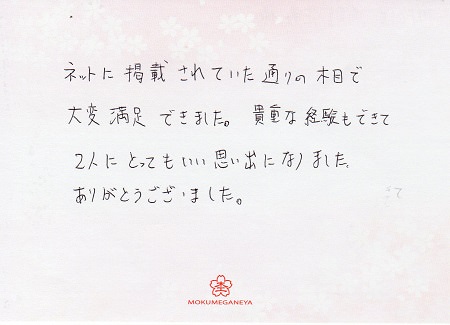 ネットに掲載されていた通りの木目で
大変満足できました。貴重な経験もできて
2人にとってもいい思い出になりました。
ありがとうございました。
MOKUMEGANEYA